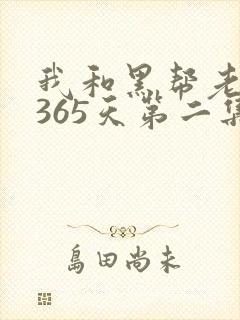 我和黑帮老
365天第二集
島田尚未